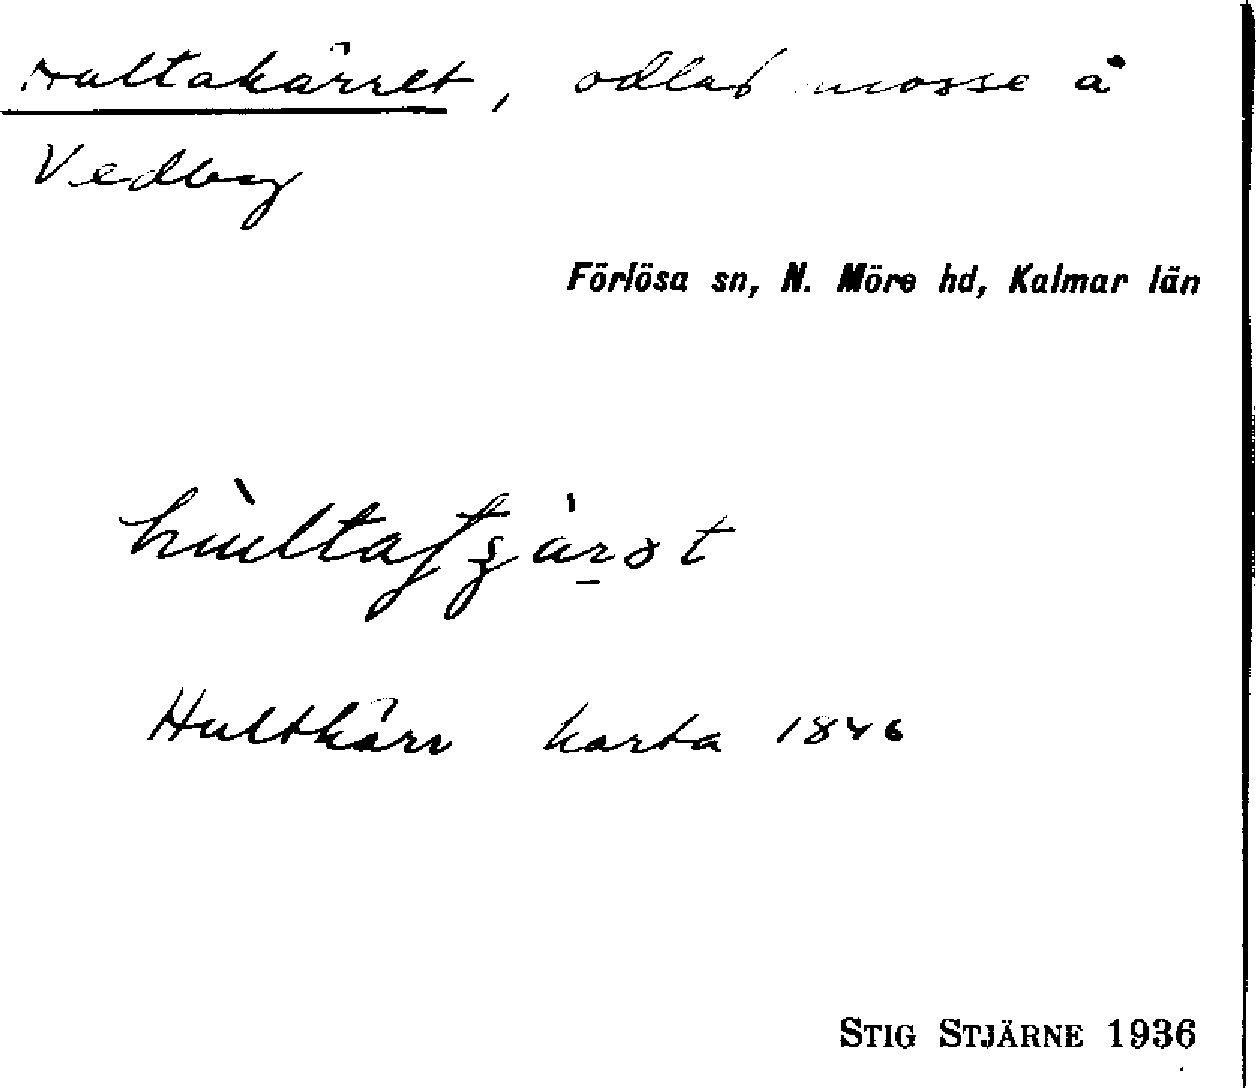 Hultakärret, odlad mosse å
Vedby
Förlösa sn, N. Möre hd, Kalmar län
Hultkärr karta 1846
STIG STJÄRNE 1936